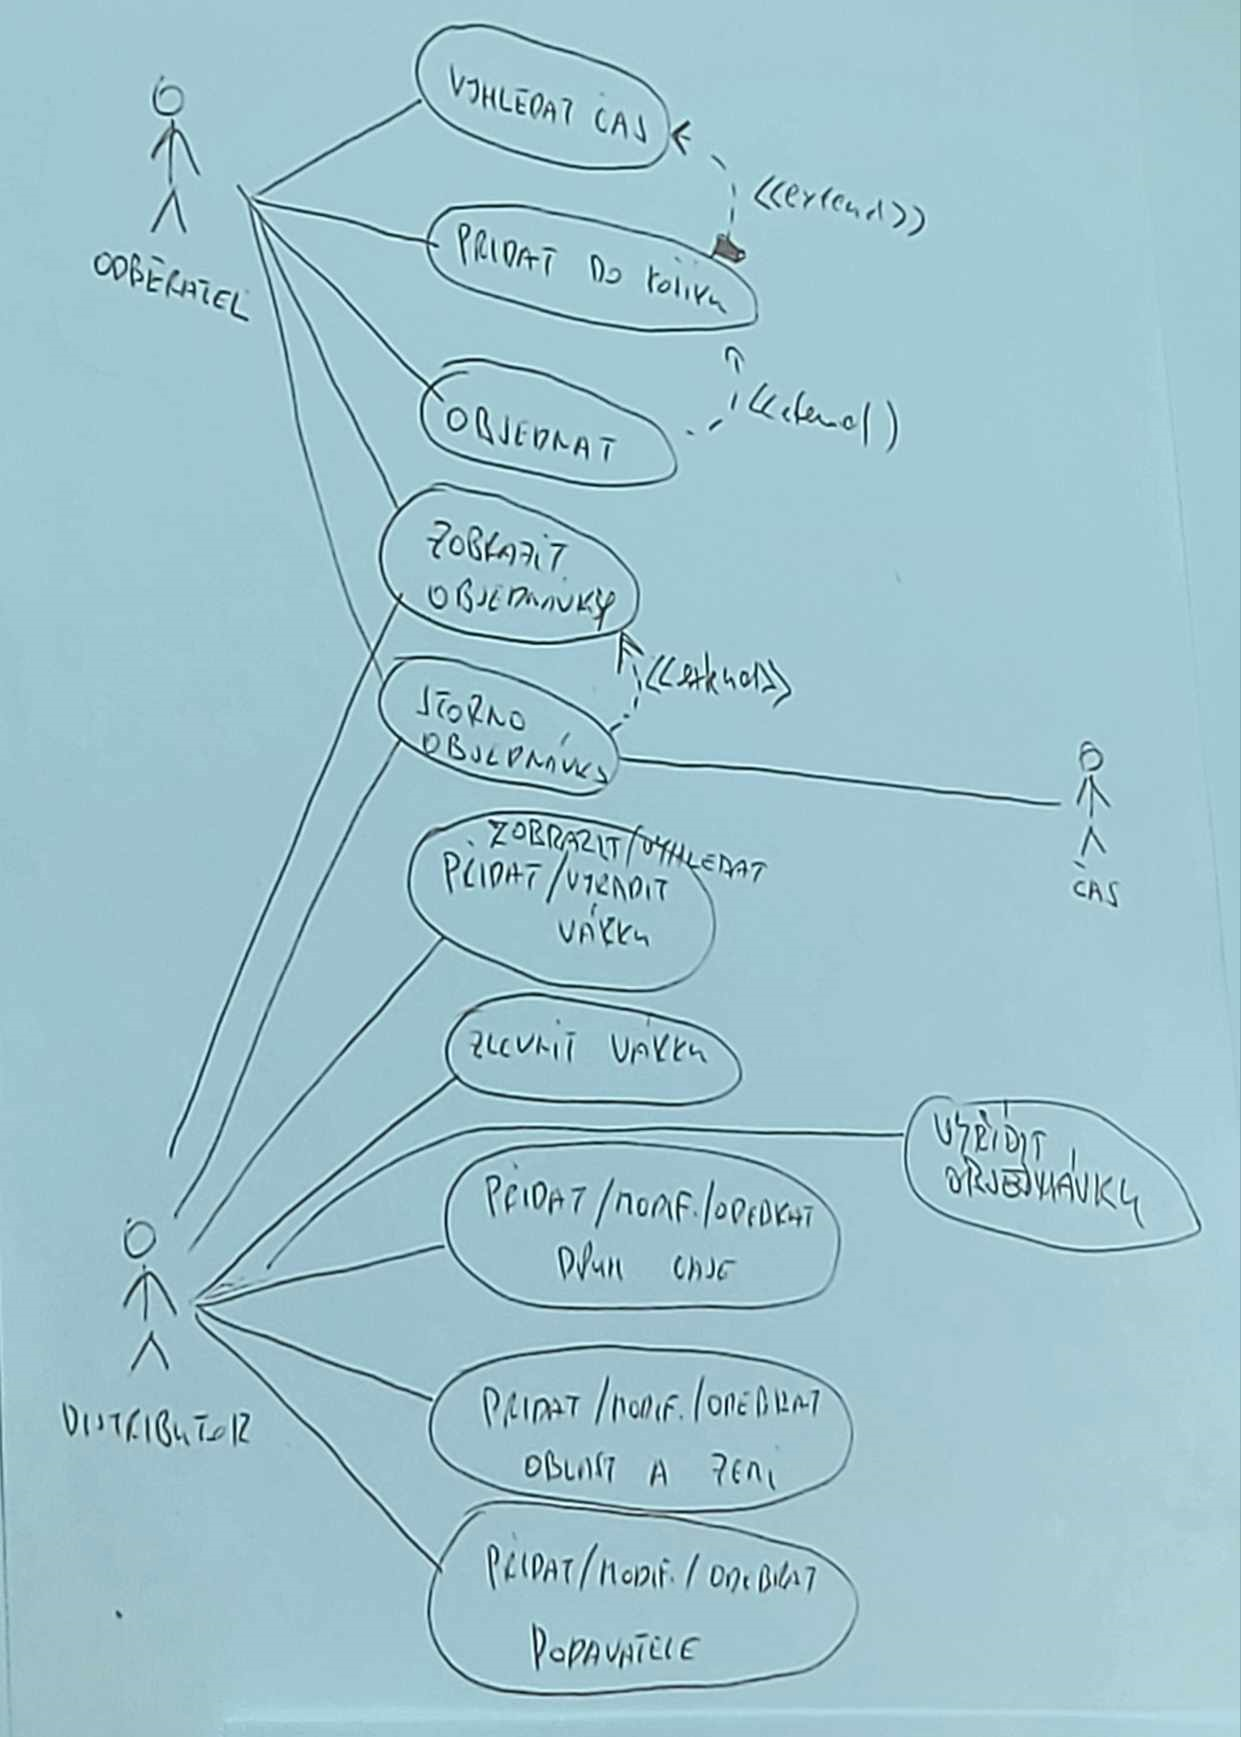 VYHLEDAT ČAJ
<<extend>>
PŘIDAT DO KOŠÍKU
ODBĚRATEL
OBJEDNAT
ZOBRAZIT
OBJEDNÁVKY
<<extend>>
STORNO
OBJEDNÁVKY
ČAS
ZOBRAZIT/VYHLEDAT
PŘIDAT/VYŘADIT
VÁRKU
ZLEVNIT VÁRKU
VYŘÍDIT
OBJEDNÁVKU
PŘIDAT/MODIF./ODEBRAT
DRUH ČAJE
DISTRIBUTOR
PŘIDAT/MODIF./ODEBRAT
OBLAST A ZEMI
PŘIDAT/MODIF./ODEBRAT
DODAVATELE